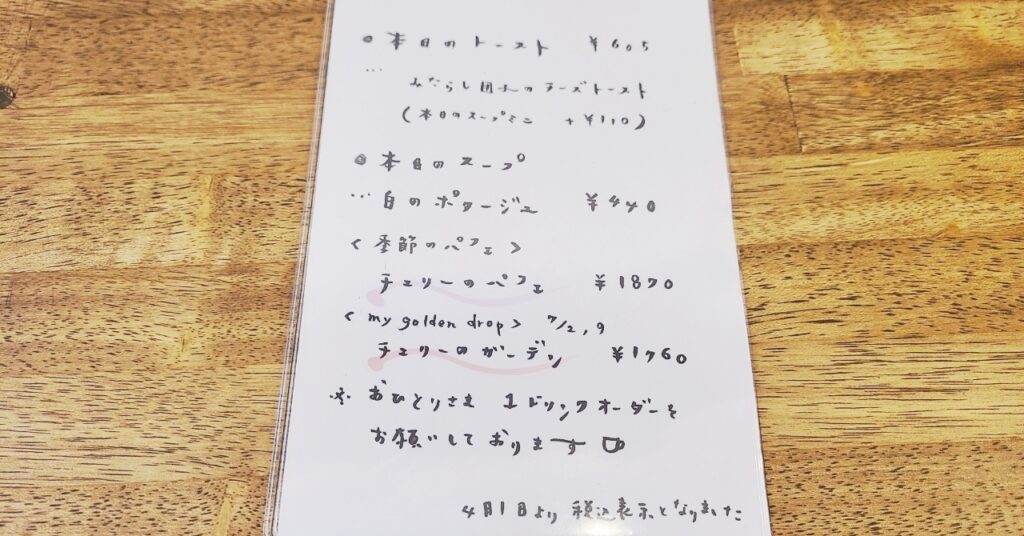 ◎本日のトースト ¥605
… みたらし団子のチーズトースト
(本日のスープミニ +¥110)
◎本日のスープ
… 白のポタージュ ¥440
<季節のパフェ>
チェリーのパフェ ¥1870
<my golden drop> 7/2,9
チェリーのガーデン ¥1760
※おひとりさま 1ドリンクオーダーを
お願いしております
4月1日より税込表示となりました